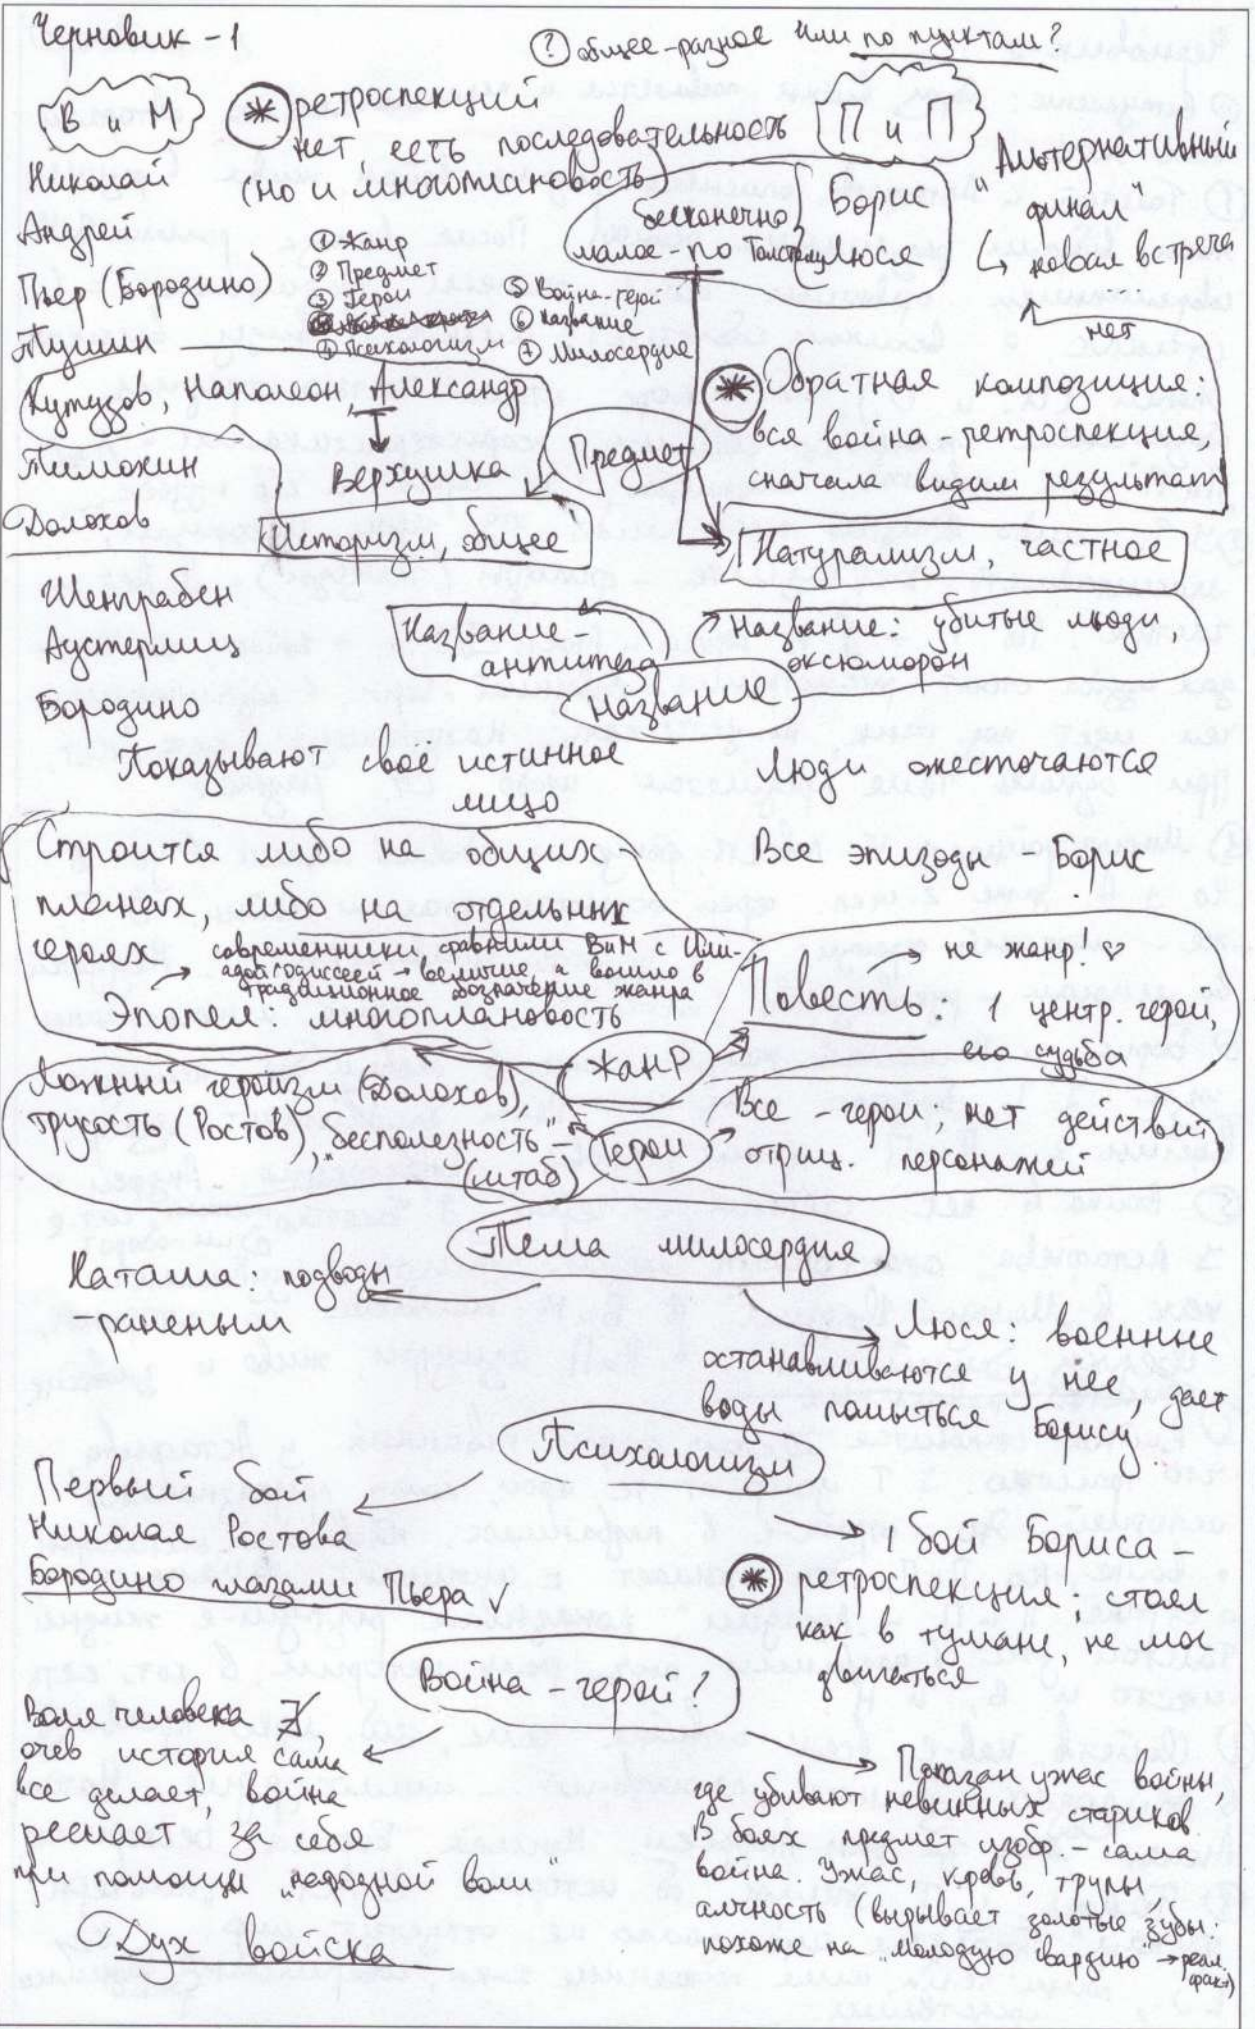 Черновик - 1
? общее-разное или по пунктам?
В и М
* ретроспекций
нет, есть последовательность
(но и многоплановость)
П и П
Альтернативный
"финал"
новая встреча
нет
Николай
Андрей
Пьер (Бородино)
Тушин
Кутузов, Наполеон, Александр
Тимохин
Долохов
Шенграбен
Аустерлиц
Бородино
① Жанр
② Предмет
③ Герои
④ Психологизм
⑤ Война-герой
⑥ Название
⑦ Милосердие
бесконечно
малое - по Толстому
Борис
Люся
Верхушка
Предмет
Историзм, общее
* Обратная композиция:
вся война - ретроспекция,
сначала видим результат
Натурализм, частное
Название-
антитеза
Название: убитые люди,
оксюморон
Название
Показывают своё истинное
лицо
Люди ожесточаются
Строится либо на общих
планах, либо на отдельных
героях
современники сравнили ВиМ с Или-
адой/одиссеей → величие, а вошло в
традиционное обозначение жанра
Эпопея: многоплановость
Все эпизоды - Борис
не жанр! ♡
Повесть: 1 центр. герой,
его судьба
Жанр
Ложный героизм (Долохов),
трусость (Ростов), "бесполезность" -
(штаб)
Герои
Все - герои; нет действий
отриц. персонажей
Тема милосердия
Наташа: подводы
- раненым
Люся: военные
останавливаются у неё, дает
воды помыться Борису
Психологизм
Первый бой
Николая Ростова
Бородино глазами Пьера ✓
1 бой Бориса -
* ретроспекция; стоял
как в тумане, не мог
двигаться
Война - герой?
Воля человека
история сама
все делает, война
решает за себя
при помощи "народной воли"
Дух войска
Показан ужас войны,
где убивают невинных стариков.
В боях предмет изобр - сама
война. Ужас, кровь, трупы,
алчность (вырывает золотые зубы:
похоже на "Молодую гвардию" → реал.
факт)